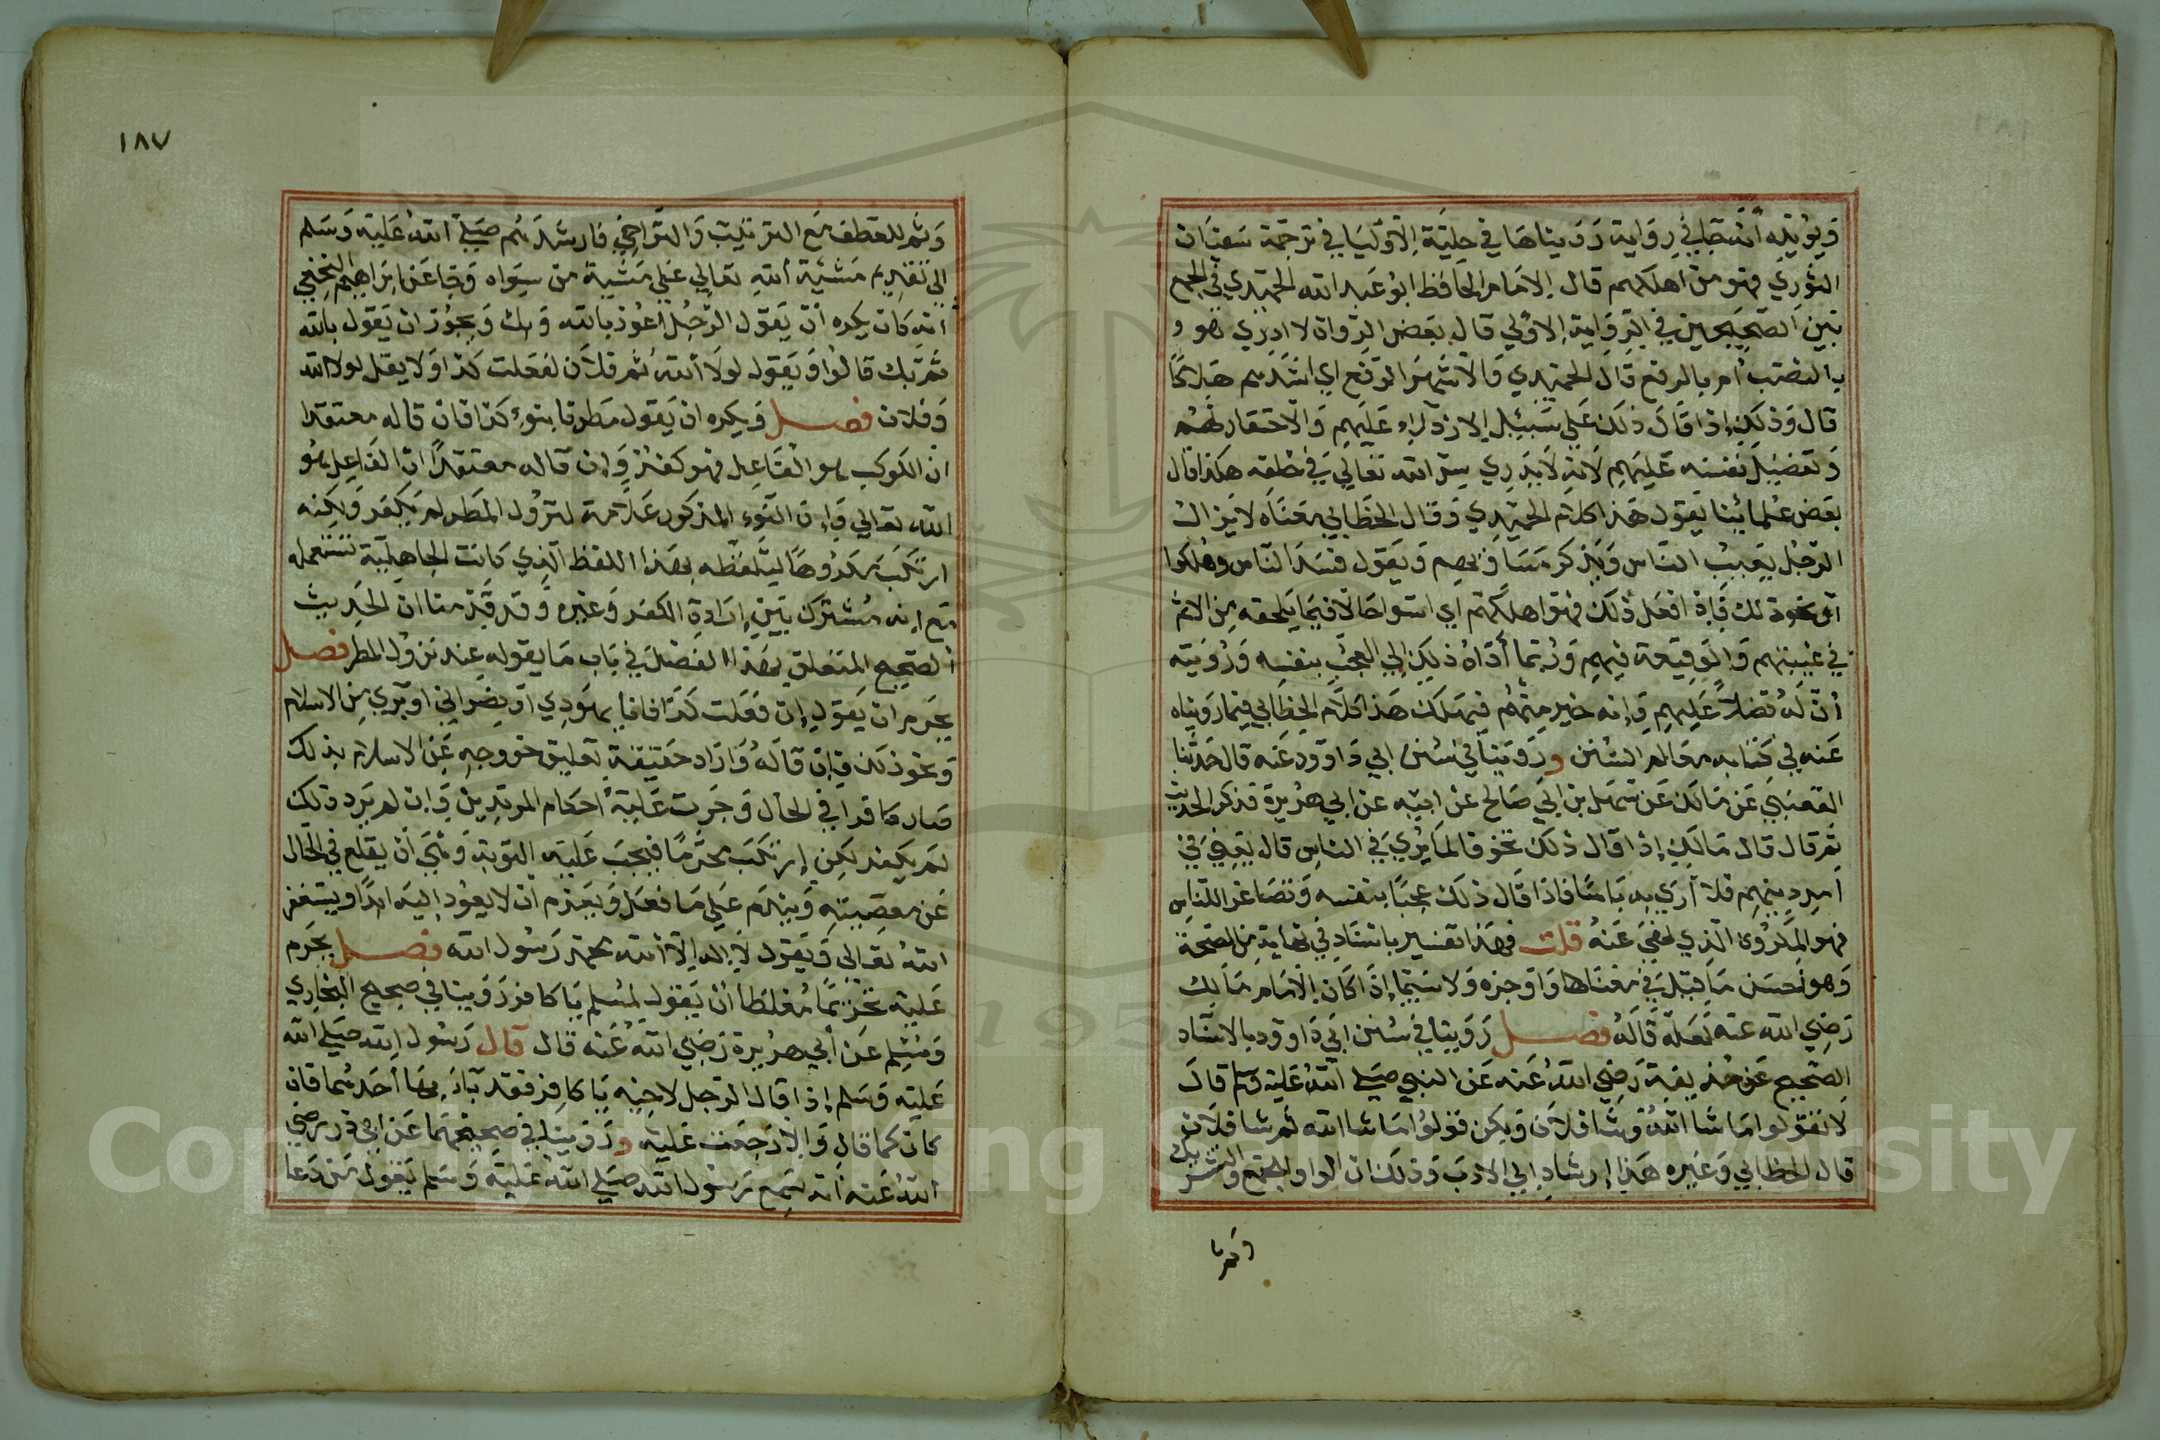 ويؤيده أنه جا في رواية رويناها في حلية الاوليا في ترجمة سفيان
الثوري فهو من اهلكهم قال الامام الحافظ ابو عبد الله الحميدي في الجمع
بين الصحيحين في الرواية الاولى قال بعض الرواة لا ادري هو
بالنصب أم بالرفع قال الحميدي والاشهر الرفع اي اشدهم هلاكا
قال وذلك إذا قال ذلك على سبيل الازراء عليهم والاحتقار لهم
وتفضيل نفسه عليهم لانه لا يدري سر الله تعالى في خلقه هكذا قال
بعض علمائنا يقول هذا كلام الحميدي وقال الخطابي معناه لا يزال
الرجل يعيب الناس ويذكر مساويهم ويقول فسد الناس وهلكوا
او نحو ذلك فاذا فعل ذلك فهو اهلكهم اي اسوا حالا فيما يلحقه من الاثم
في غيبتهم والوقيعة فيهم وربما أداه ذلك إلى العجب بنفسه ورؤيته
أن له فضلا عليهم وإنه خير منهم فيهلك هذا كلام الخطابي فيما رويناه
عنه في كتابه معالم السنن وروينا في سنن ابي داوود عنه قال حدثنا
القعنبي عن مالك عن سهيل بن ابي صالح عن ابيه عن ابي هريرة فذكر الحديث
ثم قال قال مالك إذا قال ذلك تحزنا لما يري في الناس قال يعني في
أمر دينهم فلا أرى به باسا فاذا قال ذلك عجبا بنفسه وتصاغرا للناس
فهو المكروه الذي نهي عنه قلت فهذا تفسير باسناد في نهاية من الصحة
وهو أحسن ما قيل في معناها واوجزه ولا سيما إذا كان الامام مالك
رضي الله عنه نقله قاله فصل روينا في سنن ابي داوود بالاسناد
الصحيح عن حذيفة رضي الله عنه عن النبي صلى الله عليه وسلم قال
لا تقولوا ما شا الله وشا فلان ولكن قولوا ما شا الله ثم شا فلان
قال الخطابي وغيره هذا إرشاد الى الادب وذلك ان الواو للجمع والتشريك
وثم للعطف مع الترتيب والتراخي فارشدهم صلى الله عليه وسلم
الى تقديم مشية الله تعالى على مشية من سواه وجا عن ابراهيم النخعي
أنه كان يكره أن يقول الرجل أعوذ بالله وبك ويجوز ان يقول بالله
ثم بك قالوا ويقول لولا الله ثم فلان لفعلت كذا ولا يقل لولا الله
وفلان فصل ويكره ان يقول مطرنا بنوء كذا فان قاله معتقدا
ان الكوكب هو الفاعل فهو كفر وإن قاله معتقدا ان الفاعل هو
الله تعالى وإن النوء المذكور علامة لنزول المطر لم يكفر ولكنه
ارتكب مكروها لتلفظه بهذا اللفظ الذي كانت الجاهلية تستعمله
مع انه مشترك بين إرادة الكفر وغيره وقد قدمنا ان الحديث
الصحيح المتعلق بهذا الفصل في باب ما يقوله عند نزول المطر فصل
يحرم ان يقول إن فعلت كذا فانا يهودي او نصراني او بري من الاسلام
ونحو ذلك فإن قاله وأراد حقيقة تعليق خروجه عن الاسلام بذلك
صار كافرا في الحال وجرت عليه أحكام المرتدين وإن لم يرد ذلك
لم يكفر لكن إرتكب محرما فيجب عليه التوبة وهي أن يقلع في الحال
عن معصيته ويندم على ما فعل ويعزم ان لا يعود إليه ابدا ويستغفر
الله تعالى ويقول لا إله إلا الله محمد رسول الله فصل يحرم
عليه تحريما مغلظا أن يقول لمسلم يا كافر روينا في صحيح البخاري
ومسلم عن أبي هريرة رضي الله عنه قال قال رسول الله صلى الله
عليه وسلم إذا قال الرجل لاخيه يا كافر فقد باء بها أحدهما فان
كان كما قال والا رجعت عليه وروينا في صحيحهما عن ابي ذر رضي
الله عنه أنه سمع رسول الله صلى الله عليه وسلم يقول من دعا
١٨٧
Copyright © King Saud University